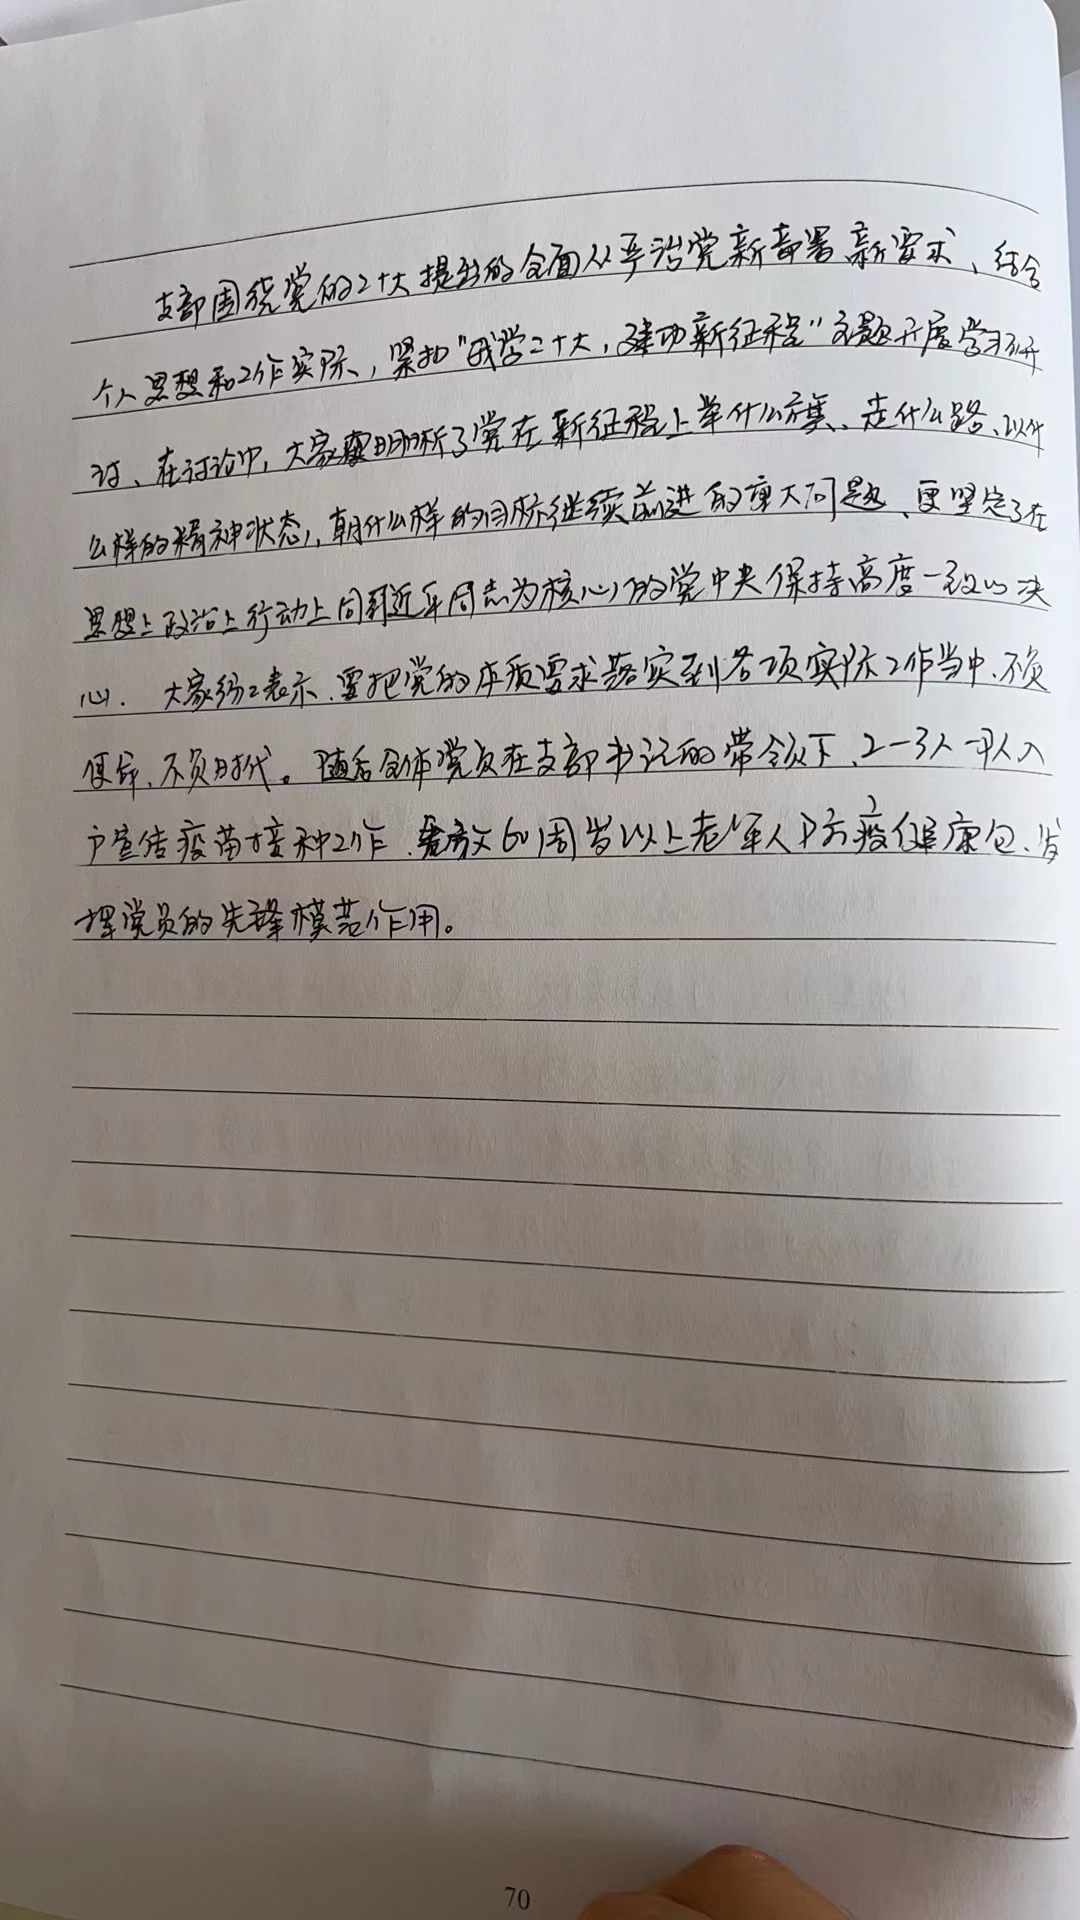 支部围绕党的二十大提出的全面从严治党新部署、新要求、结合
个人思想和工作实际、,紧扣“我学二十大,建功新征程”主题开展学习研
讨、在讨论中,大家更明晰了党在新征程上举什么旗、走什么路、以什
么样的精神状态,朝什么样的目标继续前进的重大问题、更坚定了在
思想上政治上行动上同习近平同志为核心的党中央保持高度一致的决
心. 大家纷纷表示.要把党的本质要求落实到各项实际工作当中.不负
使命、不负时代。随后全体党员在支部书记的带领下、2-3人一组入
户宣传疫苗接种工作.发放60周岁以上老年人防疫健康包、发
挥党员的先锋模范作用。
70